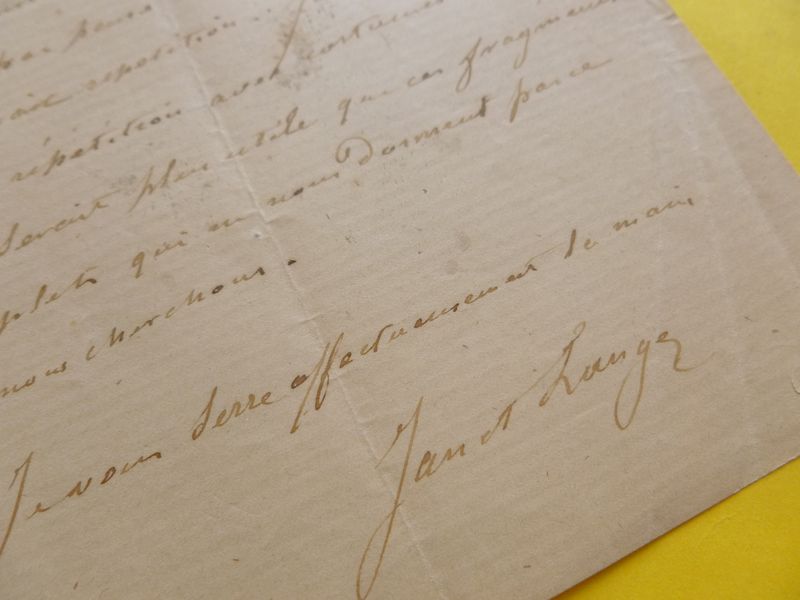 répétition
répétition avec costumes
serait plus utile que ces fragments
plets qui ne nous donnent parce
nous cherchons.
Je vous serre affectueusement la main
Janet Lange